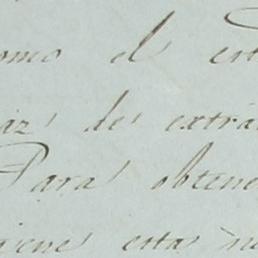 omo el est
az de extra
Para obtene
iene esta ne